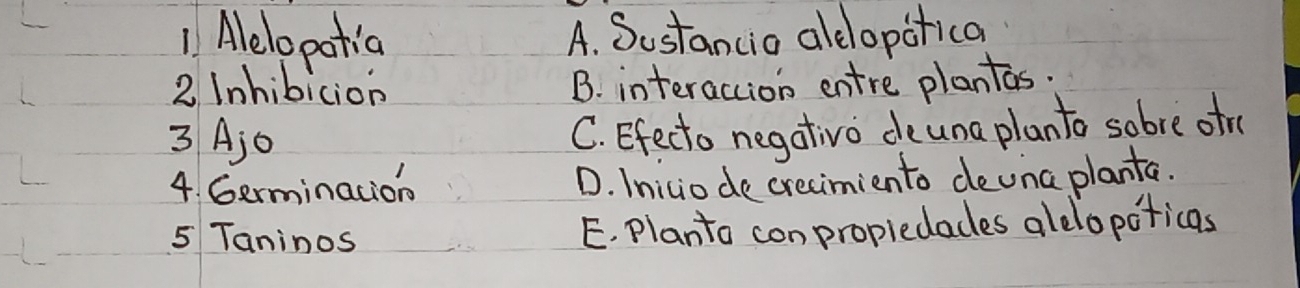 1) Alelopatía A. Sustancia alelopática
2. Inhibición B. interacción entre plantas.
3 Ajo C. Efecto negativo de una planta sobre otra
4. Germinación D. Inicio de crecimiento de una planta.
5 Taninos E. Planta con propiedades alelopáticas